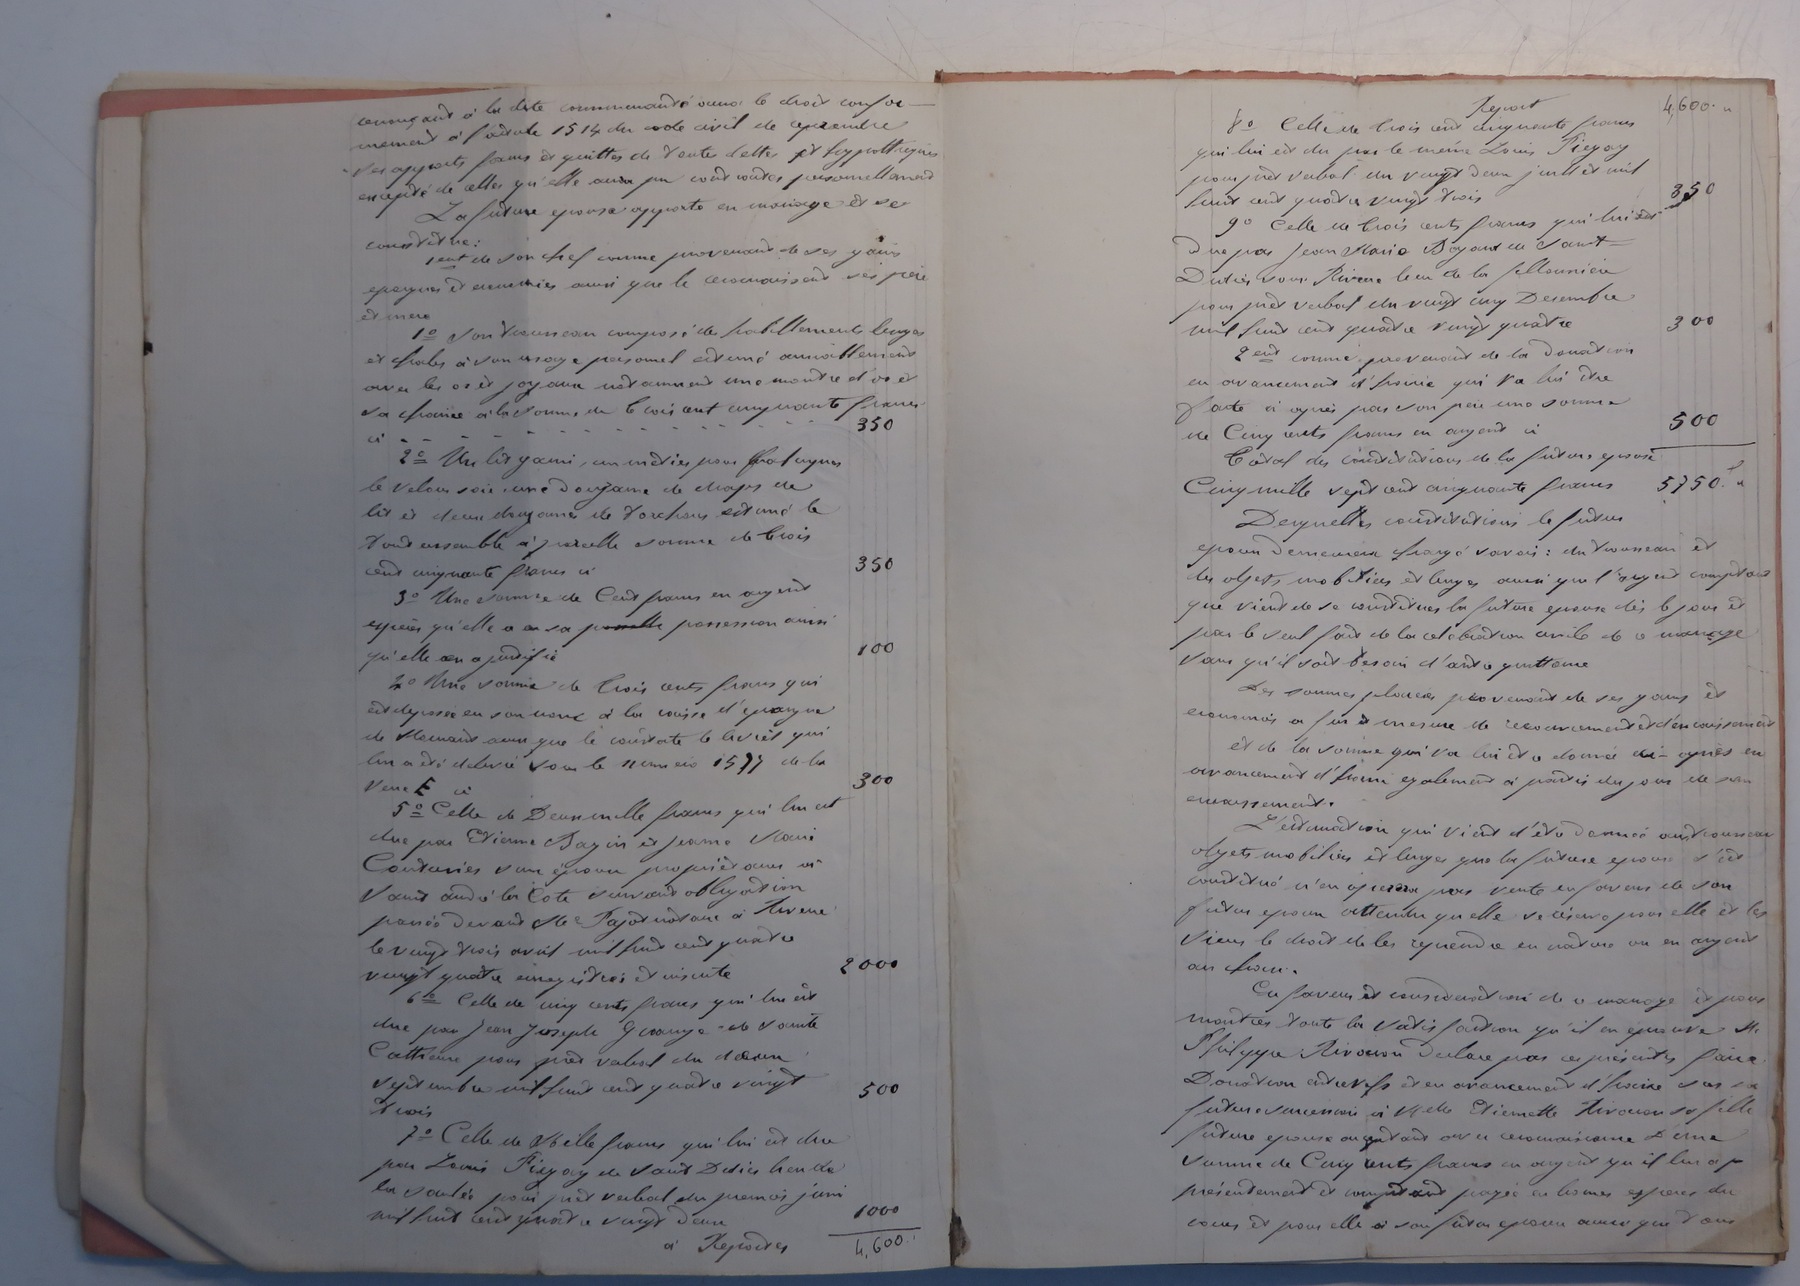 renonçant à la dite communauté aura le droit confor-
mément à l'article 1514 du code civil de reprendre
ses apports francs et quittes de toutes dettes et hypothèques
excepté de celles qu'elle aura pu contracter personnellement
La future epouse apporte en mariage et se
constitue:
1ent de son chef comme provenant de ses gains
epargnes et economies ainsi que le reconnaissent ses père
et mère
1o Son trousseau composé de habillements linges
et hardes à son usage personnel estimé amiablement
avec les or et joyaux notamment une montre d'or et
sa chaine à la somme de trois cent cinquante francs
ci - - - - - - - - - - - - - 350
2o Un lit garni, un métier pour fabriquer
le velours soie, une douzaine de draps de
lit et deux douzaines de torchons estimé le
tout ensemble à pareille somme de trois
cent cinquante francs ci 350
3o Une somme de Cent francs en argent
espèces qu'elle a en sa possession ainsi
qu'elle en a justifié 100
4o Une somme de trois cents francs qui
est deposée en son nom à la caisse d'epargne
de Mornant ainsi que le constate le livret qui
lui a été délivré sous le numéro 1577 de la
serie E ci 300
5o Celle de Deux mille francs qui lui est
due par Etienne Bazin et Jeanne Marie
Couturier son épouse propriétaires à
Saint andé la Cote suivant obligation
passée devant Me Fayot notaire à Riverie
le vingt trois avril mil huit cent quatre
vingt quatre enregistrée et inscrite 2000
6o Celle de cinq cents francs qui lui est
due par Jean Joseph Grange de Sainte
Catherine pour prêt verbal du deux
septembre mil huit cent quatre vingt
trois 500
7o Celle de Mille francs qui lui est due
par Louis Piegay de Saint Didier lieu de
la pour prêt verbal du premier juin
mil huit cent quatre vingt deux 1000
à Reporter 4,600.
Report 4,600. "
8o Celle de trois cent cinquante francs
qui lui est du par le même Louis Piegay
pour prêt verbal du vingt deux juillet mil
huit cent quatre vingt trois 350
9o Celle de trois cents francs qui lui est
due par Jean Marie de Saint
Didier sous Riverie lieu de la
pour prêt verbal du vingt cinq Decembre
mil huit cent quatre vingt quatre 300
2ent comme provenant de la Donation
en avancement d'hoirie qui va lui être
faite ci après par son père une somme
de Cinq cents francs en argent ci 500
Total des constitutions de la future epouse
Cinq mille sept cent cinquante francs 5750.f "
Desquelles constitutions le futur
epoux demeurera chargé savoir: du trousseau et
des objets mobiliers et linges ainsi que l'argent comptant
que vient de se constituer la future epouse dès le jour et
par le seul fait de la celebration civile de ce mariage
sans qu'il soit besoin d'autre quittance
Des sommes placées provenant de ses gains et
economies a fur et mesure de recouvrement et d'encaissement
et de la somme qui va lui être donnée ci-après en
avancement d'hoirie egalement à partir du jour de son
encaissement.
L'estimation qui vient d'être donnée au trousseau
objets mobiliers et linges que la future epouse s'est
constitué n'en opérera pas vente en faveur de son
futur epoux attendu qu'elle se réserve pour elle et les
siens le droit de les reprendre en nature ou en argent
au choix.
En faveur et consideration de ce mariage et pour
montrer toute la satisfaction qu'il en eprouve M.
Philippe Rivoiron declare par ces présentes faire
Donation entrevifs et en avancement d'hoirie sur sa
future succession à Melle Etiennette Rivoiron sa fille
future epouse acceptant avec reconnaissance D'une
somme de Cinq cents francs en argent qu'il lui a
présentement et comptant payée en bonnes espèces du
cours et pour elle à son futur epoux ainsi que tous